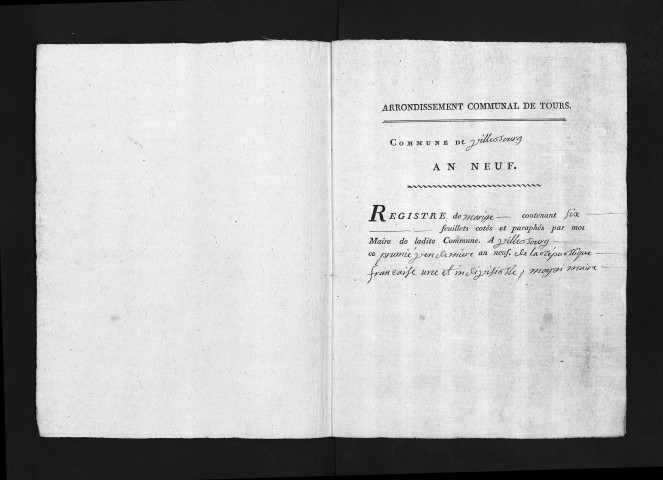 ARRONDISSEMENT COMMUNAL DE TOURS.
COMMUNE DE villebourg
AN NEUF.
REGISTRE de marige contenant six
feuillets cotés et paraphés par moi
Maire de ladite Commune. A villebourg
ce premié vendemiere an neuf. de la republique
francaise une et indivisible, mayri maire